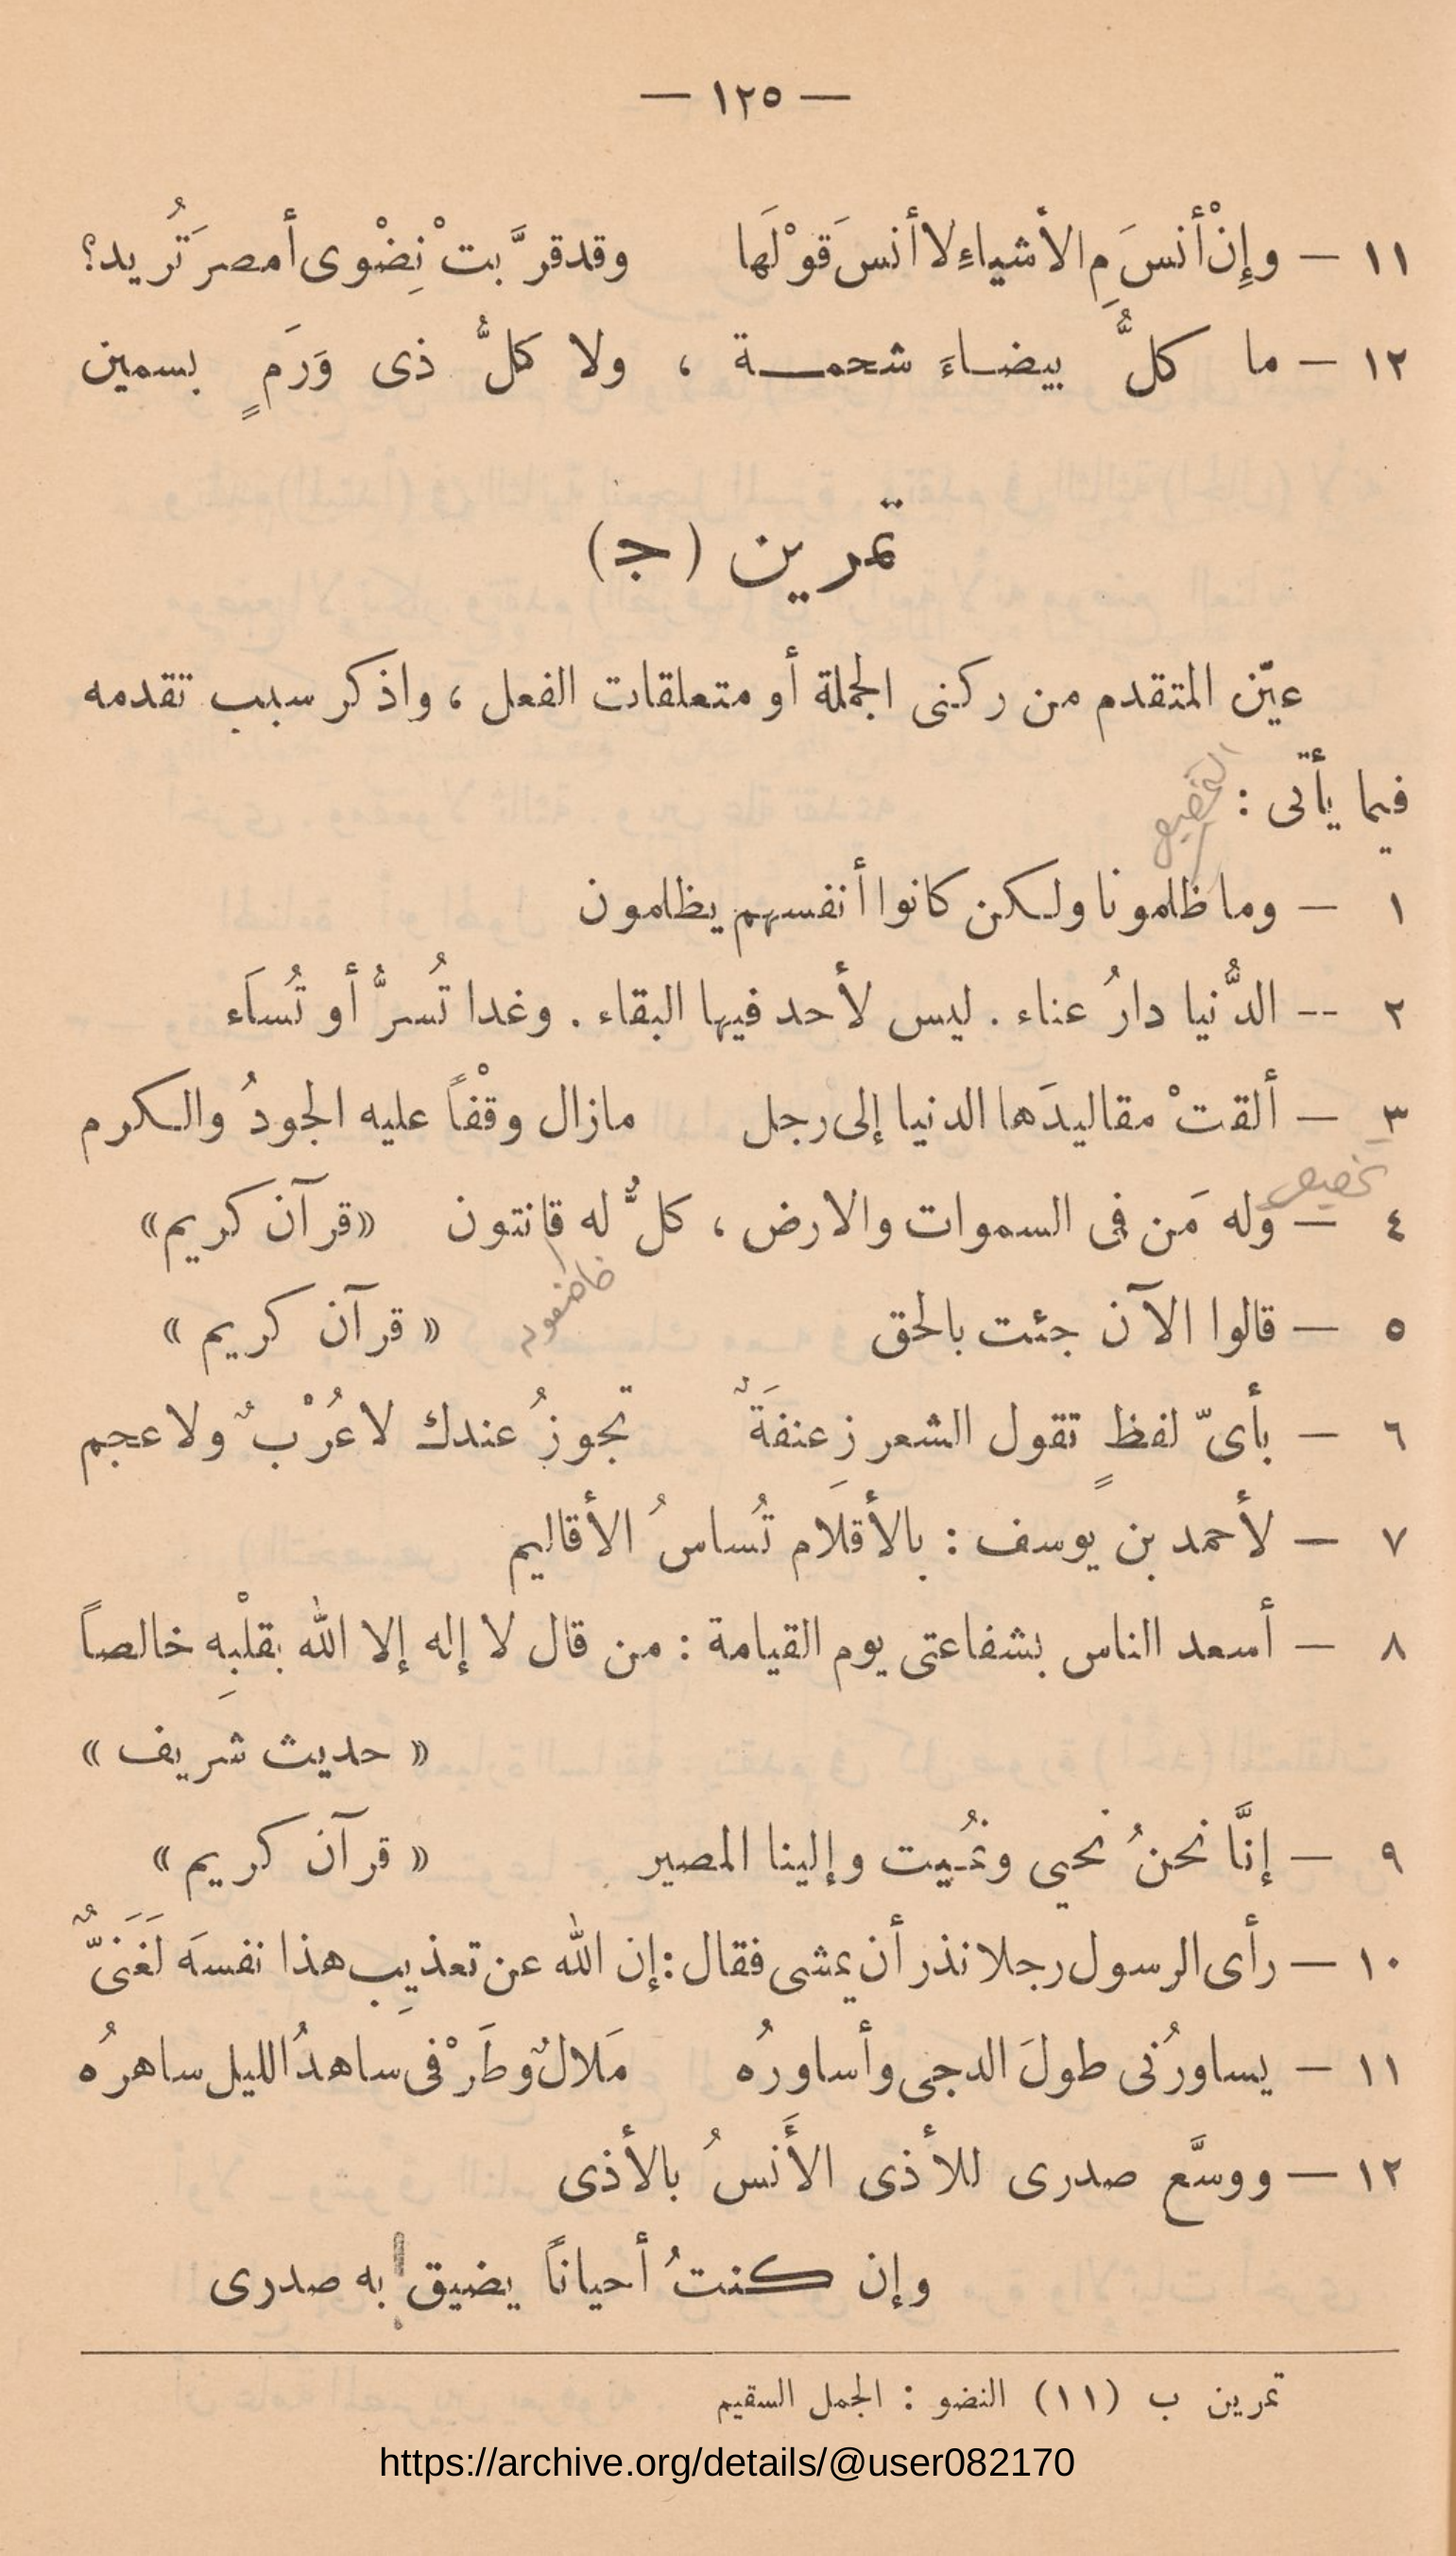 — ١٢٥ —
١١ — وإِنْ أنسَ مِ الأشياءِ لا أنسَ قوْلَها وقد قرَّبتْ نِضْوى أمصرَ تُريد؟
١٢ — ما كلُّ بيضاءَ شحمة ، ولا كلُّ ذى وَرَمٍ بسمين
تمرين (ج)
عيّن المتقدم من ركنى الجملة أو متعلقات الفعل ، واذكر سبب تقدمه
فيما يأتى :
التخصيص
١ — وما ظلمونا ولكن كانوا أنفسهم يظلمون
٢ -- الدُّنيا دارُ عناء . ليس لأحد فيها البقاء . وغدا تُسرُّ أو تُساَء
٣ — ألقتْ مقاليدَها الدنيا إلى رجل مازال وقْفاً عليه الجودُ والكرم
تخصيص
٤ — وله مَن فى السموات والارض ، كلٌّ له قانتون «قرآن كريم»
خاضعون
٥ — قالوا الآن جئت بالحق « قرآن كريم »
٦ — بأىّ لفظٍ تقول الشعر زِعنفَةٌ تجوزُ عندك لا عُرْبٌ ولا عجم
٧ — لأحمد بن يوسف : بالأقلَام تُساسُ الأقاليم
٨ — أسعد الناس بشفاعتى يوم القيامة : من قال لا إله إلا الله بقلْبِه خالصاً
« حديث شريف »
٩ — إنَّا نحنُ نحيى ونُميت وإلينا المصير « قرآن كريم »
١٠ — رأى الرسول رجلا نذر أن يمشى فقال : إن الله عن تعذيبِ هذا نفسَه لَغَنَىٌّ
١١ — يساورُنى طولَ الدجى وأساورُه مَلالٌ وطَرْفى ساهدُ الليل ساهرُه
١٢ — ووسَّع صدرى للأذى الأَنسُ بالأذى
وإن كنتُ أحياناً يضيق به صدرى
تمرين ب (١١) النضو : الجمل السقيم
https://archive.org/details/@user082170